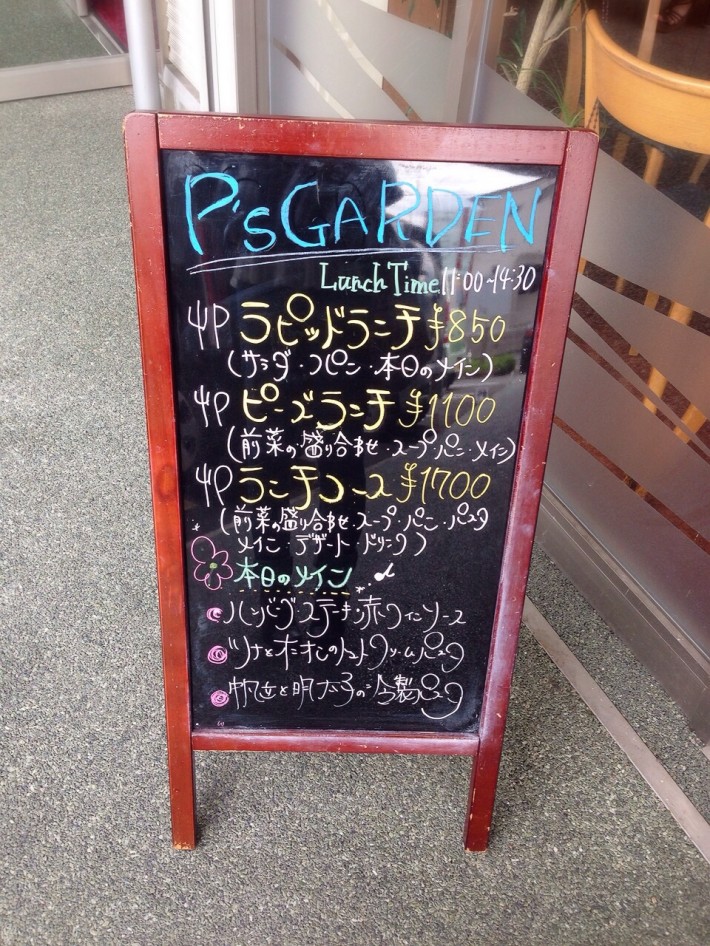 P'sGARDEN
Lunch Time 11:00~14:30
ラピッドランチ ¥850
(サラダ・コパン・本日のメイン)
ピーズランチ ¥1100
(前菜の盛り合わせ・スープ・パン・メイン)
ランチコース ¥1700
(前菜の盛り合わせ・スープ・パン・パスタ
メイン デザート ドリンク)
本日のメイン
ハンバーグステーキ・赤ワインソース
ツナとオニオンのトマトクリームパスタ
帆立と明太子の冷製パスタ